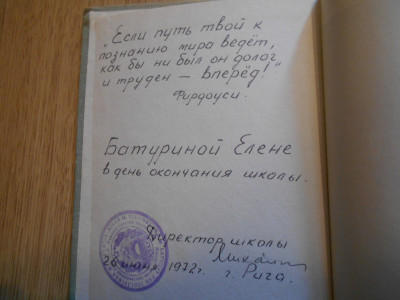 "Если путь твой к
познанию мира ведёт,
как бы ни был он долог
и труден – вперёд!"
Фирдоуси.
Батуриной Елене
в день окончания школы.
Директор школы
26 июня 1972г. г. Рига.